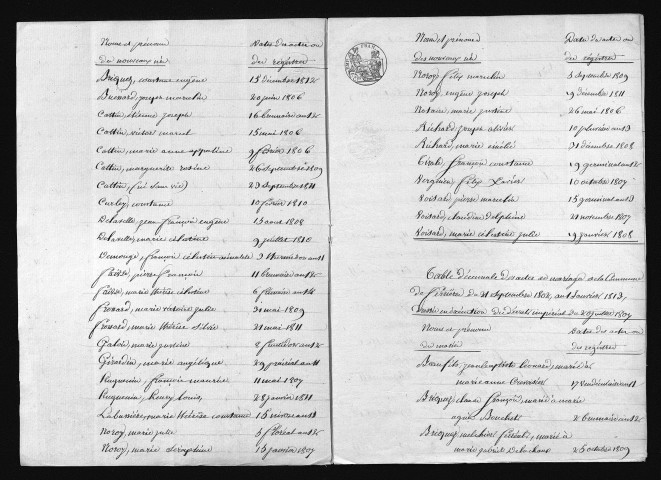 Noms et prénoms Dates des actes ou
des nouveaux nés des registres
Briquez, constance eugène 15 décembre 1812
Buessard, joseph marcelin 20 juin 1806
Cattin, étienne joseph 16 brumaire an 12
Cattin, victor marcel 15 mai 1806
Cattin, marie anne appoline 9 février 1806
Cattin, marguerite rosine 26 septembre 1809
Cattin, (né sans vie) 23 septembre 1811
Curley, constance 10 février 1810
Delavelle, jean françois eugène 15 aout 1808
Delavelle, marie célestine 9 juillet 1810
Demouge, françois célestin 9 thermidor an 11
Faivre, pierre françois 11 brumaire an 12
Faivre, marie thérèse célestine 6 frimaire an 14
Froxard, marie victoire julie 31 mai 1809
Froxard, marie thérèse silvie 21 mai 1811
Gaboi, marie justine 2 fructidor an 12
Girardin, marie angélique 29 prairial an 11
Huguenin, françois maurice 11 mai 1807
Huguenin, henry louis 28 janvier 1811
Labussière, marie thérèse constance 15 nivose an 13
Noroy, marie julie 5 floréal an 12
Noroy, marie séraphine 15 janvier 1807
Noms et prénoms Dates des actes ou
des nouveaux nés des registres
Noroy, félix marcelin 5 septembre 1809
Noroy, eugène joseph 19 décembre 1811
Notaire, marie justine 26 mai 1806
Richard, joseph 10 pluviose an 13
Richard, marie 31 décembre 1808
françois constance 19 germinal an 12
félix xavier 10 octobre 1807
Voisard, pierre marcelin 15 germinal an 13
Voisard, claudine delphine 21 novembre 1807
Voisard, marie célestine julie 19 janvier 1808
Table Décennale des actes de mariage de la Commune
de du 21 septembre 1802, au 1 janvier 1813,
dressée en exécution du décret impérial du 20 juillet 1807
Noms et prénoms Dates des actes ou
du marié des registres
jean baptiste léonard, marié à
marie anne 17 vendémiaire an 13
Briquez, françois, marié à marie
agnès Bouchat 26 brumaire an 12
Briquez, melchior, marié à
marie gabriel Delachaux 25 octobre 1809